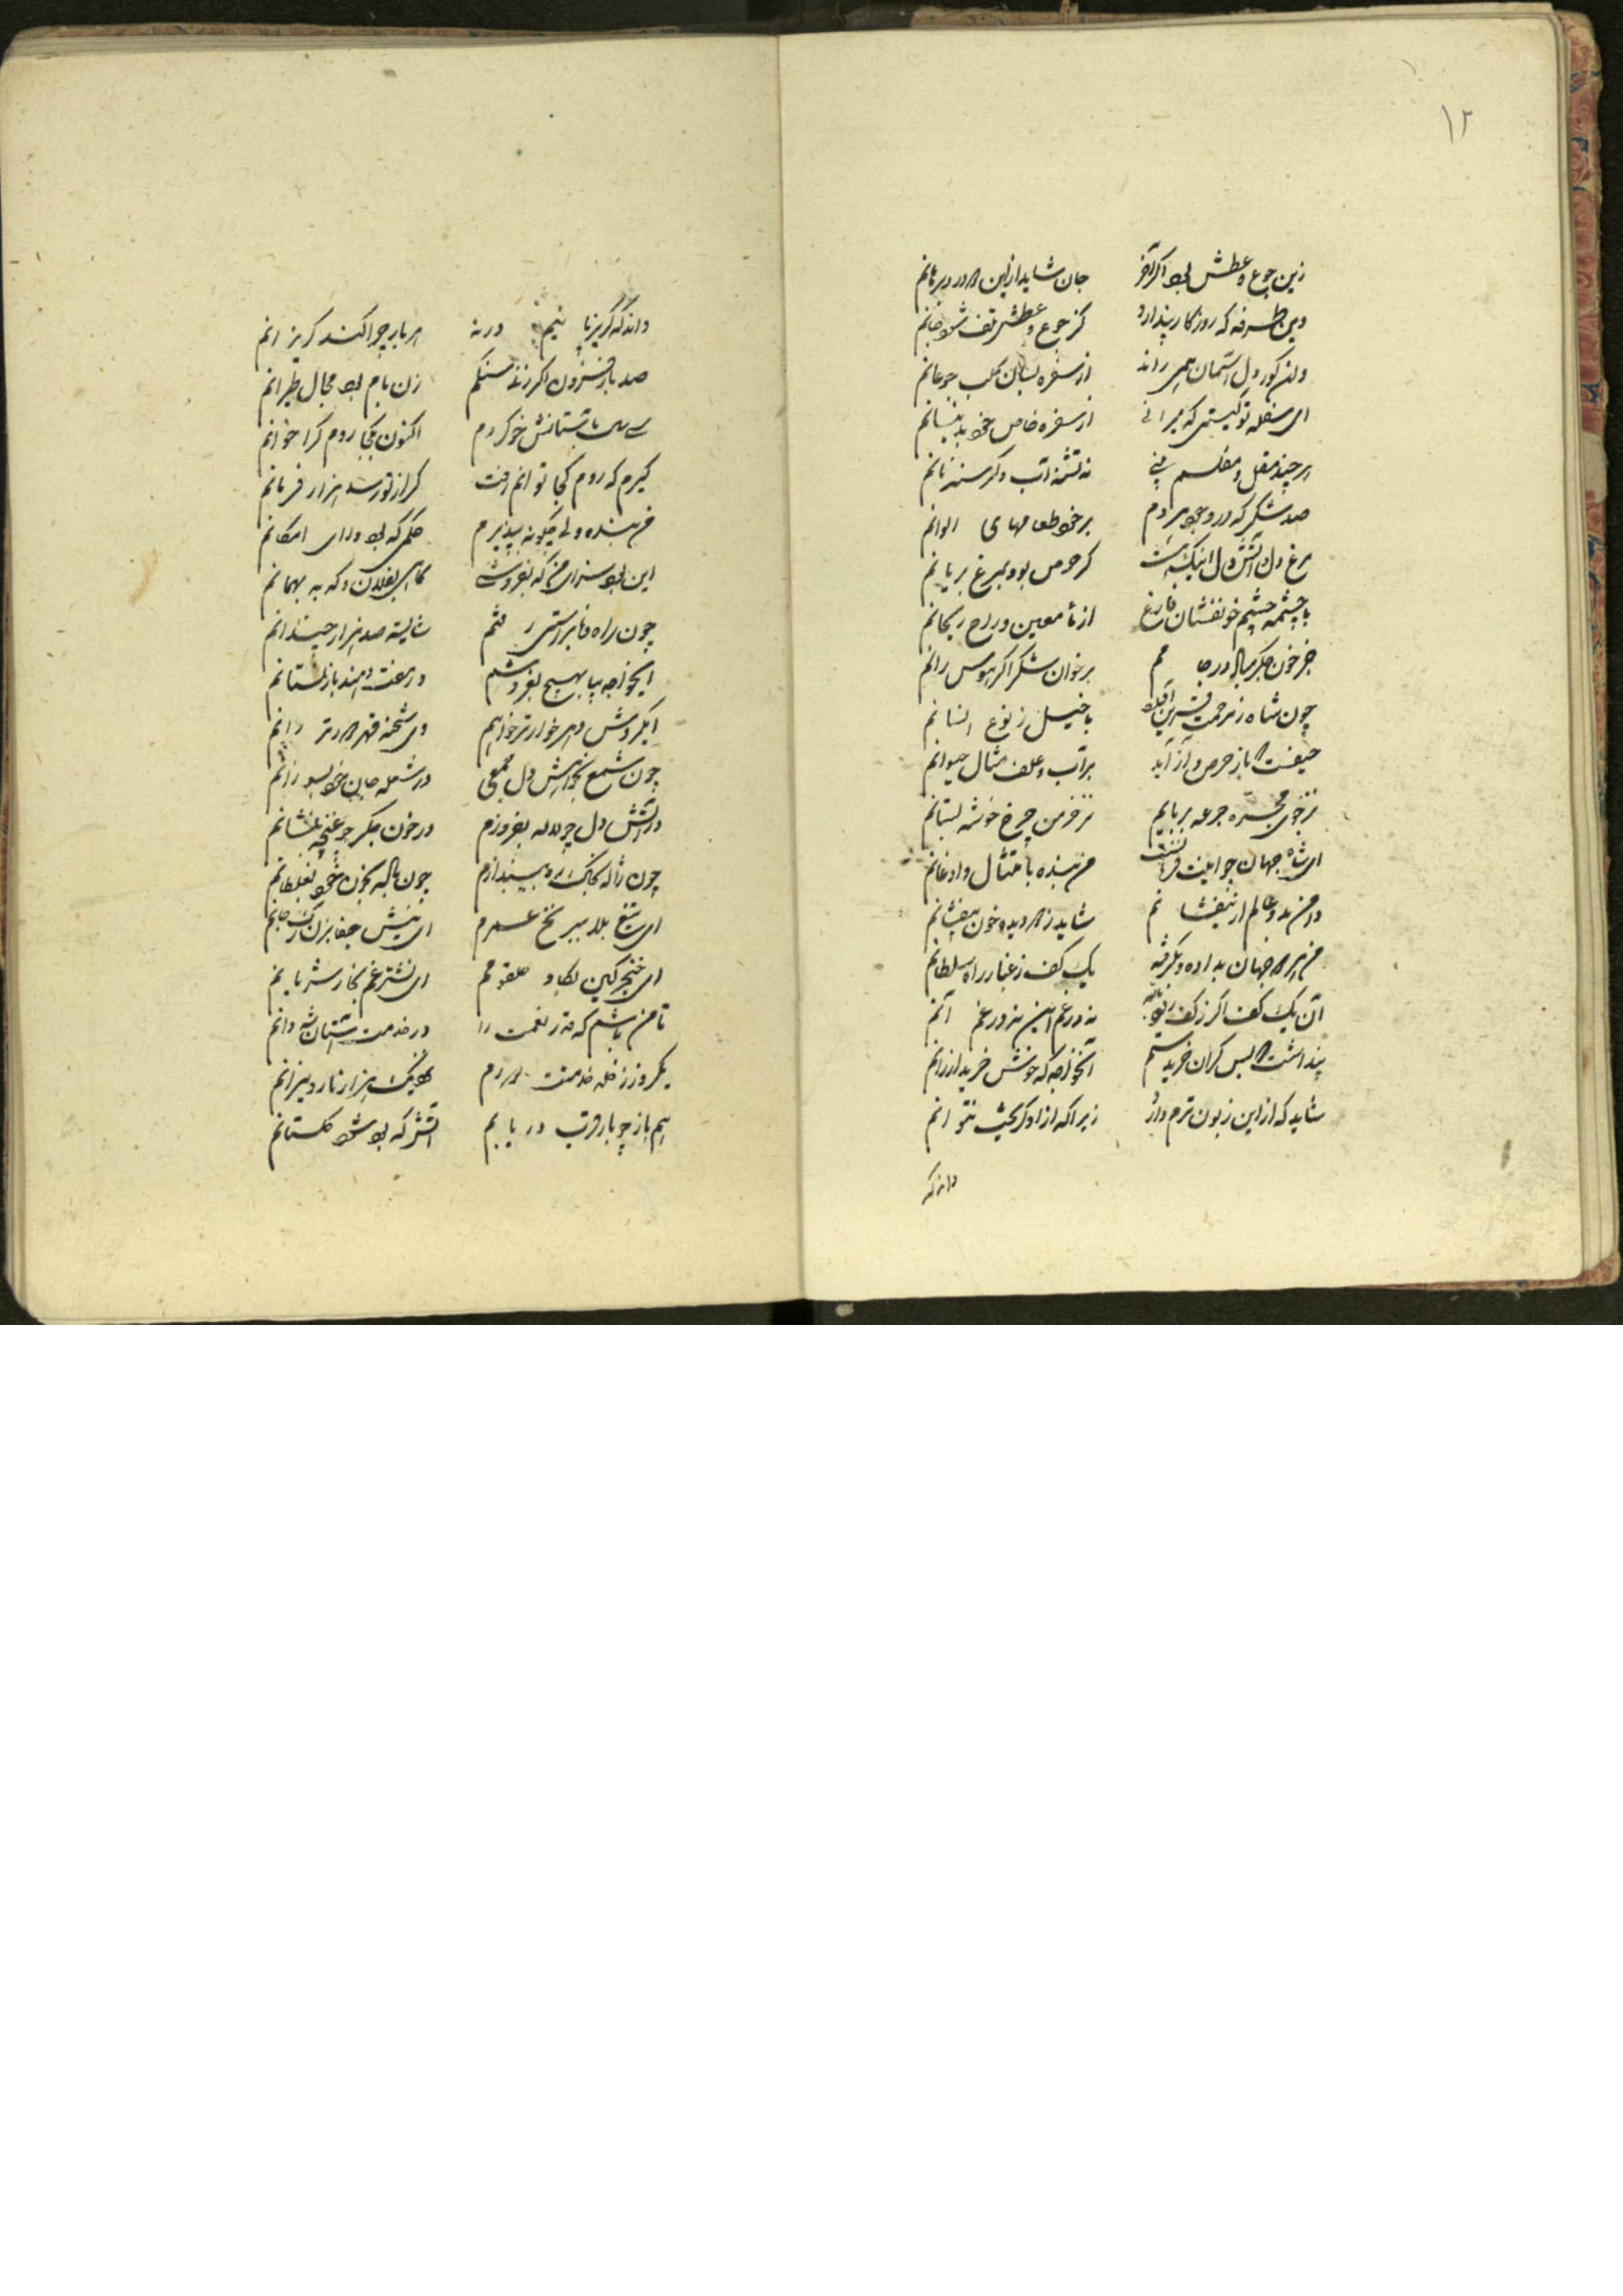 ۱۲
زین جوع و عطش بود اگر آخر جان شاید ازین دو درد برهانم
وین طرفه که روزگار پندارد کز جوع و عطش تلف شود جانم
وان کور دل آسمان همی راند از سفره بسان کلب جوعانم
ای سفله تو کیستی که میرانی از سفره خاص خود بدینسانم
هر چند مقل و مفلسم نی نی نه تشنه آب و گرسنه نانم
صد شکر که در وجوه مردم بر خود طعامهای الوانم
مرغ دل و آتش دل اینک هست گر حرص بود بمرغ بریانم
با چشمه چشم خونفشان فارغ از ماء معین و راح ریحانم
جز خون جگر مباد در جامم بر خوان شکر اگر هوس رانم
چون شاه ز مرحمت قرین با خیل ز نوع انسانم
حیفست که باز حرص و آز آید بر آب و علف مثال حیوانم
نز جوی مجره جرعه بربایم نز خرمن چرخ خوشه بستانم
ای شاه جهان چو اینت فرمانست من بنده بامتثال و اذعانم
دامن بدو عالم ار نیفشانم شاید ز دو دیده خون بیفشانم
من هر دو جهان بداده و بگرفته یک کف ز غبار راه سلطانم
آن یک کف اگر ز کف نه در غم این نه در غم آنم
پنداشت که بس گران خریدستم آنخواجه که خوش خرید ارزانم
شاید که ازین زبون ترم دارد زیرا که ازو گریخت نتوانم
داند که
داند که گریز پا نیم ورنه هر بار چرا کند گریزانم
صد بار فزون اگر زند سنگم زان بام بود مجال طیرانم
سی سال بآستانش خو کردم اکنون بکجا روم کرا خوانم
گیرم که روم کجا توانم رفت گر از تو رسد هزار فرمانم
من بنده ولی چگونه بپذیرم حکمی که بود ورای امکانم
این بود سزای من که بفروشی گاهی بفلان و گه به بهمانم
چون راه وفا براستی رفتم شایسته صد هزار چندانم
ایخواجه بیا بهیچ بفروشم ور مفت دهند باز نستانم
ای گردش دهر خوارتر خواهم وی شحنه قهر دورتر رانم
چون شمع بخواهش دل جمعی در شعله جان خود بسوزانم
در آتش دل چو لاله بفروزم در خون جگر چو غنچه بنشانم
چون ژاله بخاک راه بیندازم چون لاله بخون خود بغلطانم
ای تیغ بلا ببر نخ عمرم ای نیش جفا بزن رگ جانم
ای خنجر کین بکاو حلقومم ای نشتر غم بخار شریانم
تا من باشم که قدر نعمت را در خدمت آستان شه دانم
یکروز ز خلد خدمتت دورم بود یک هزار نار و نیرانم
هم باز چو بار قرب دریابم آتش که بود شود گلستانم